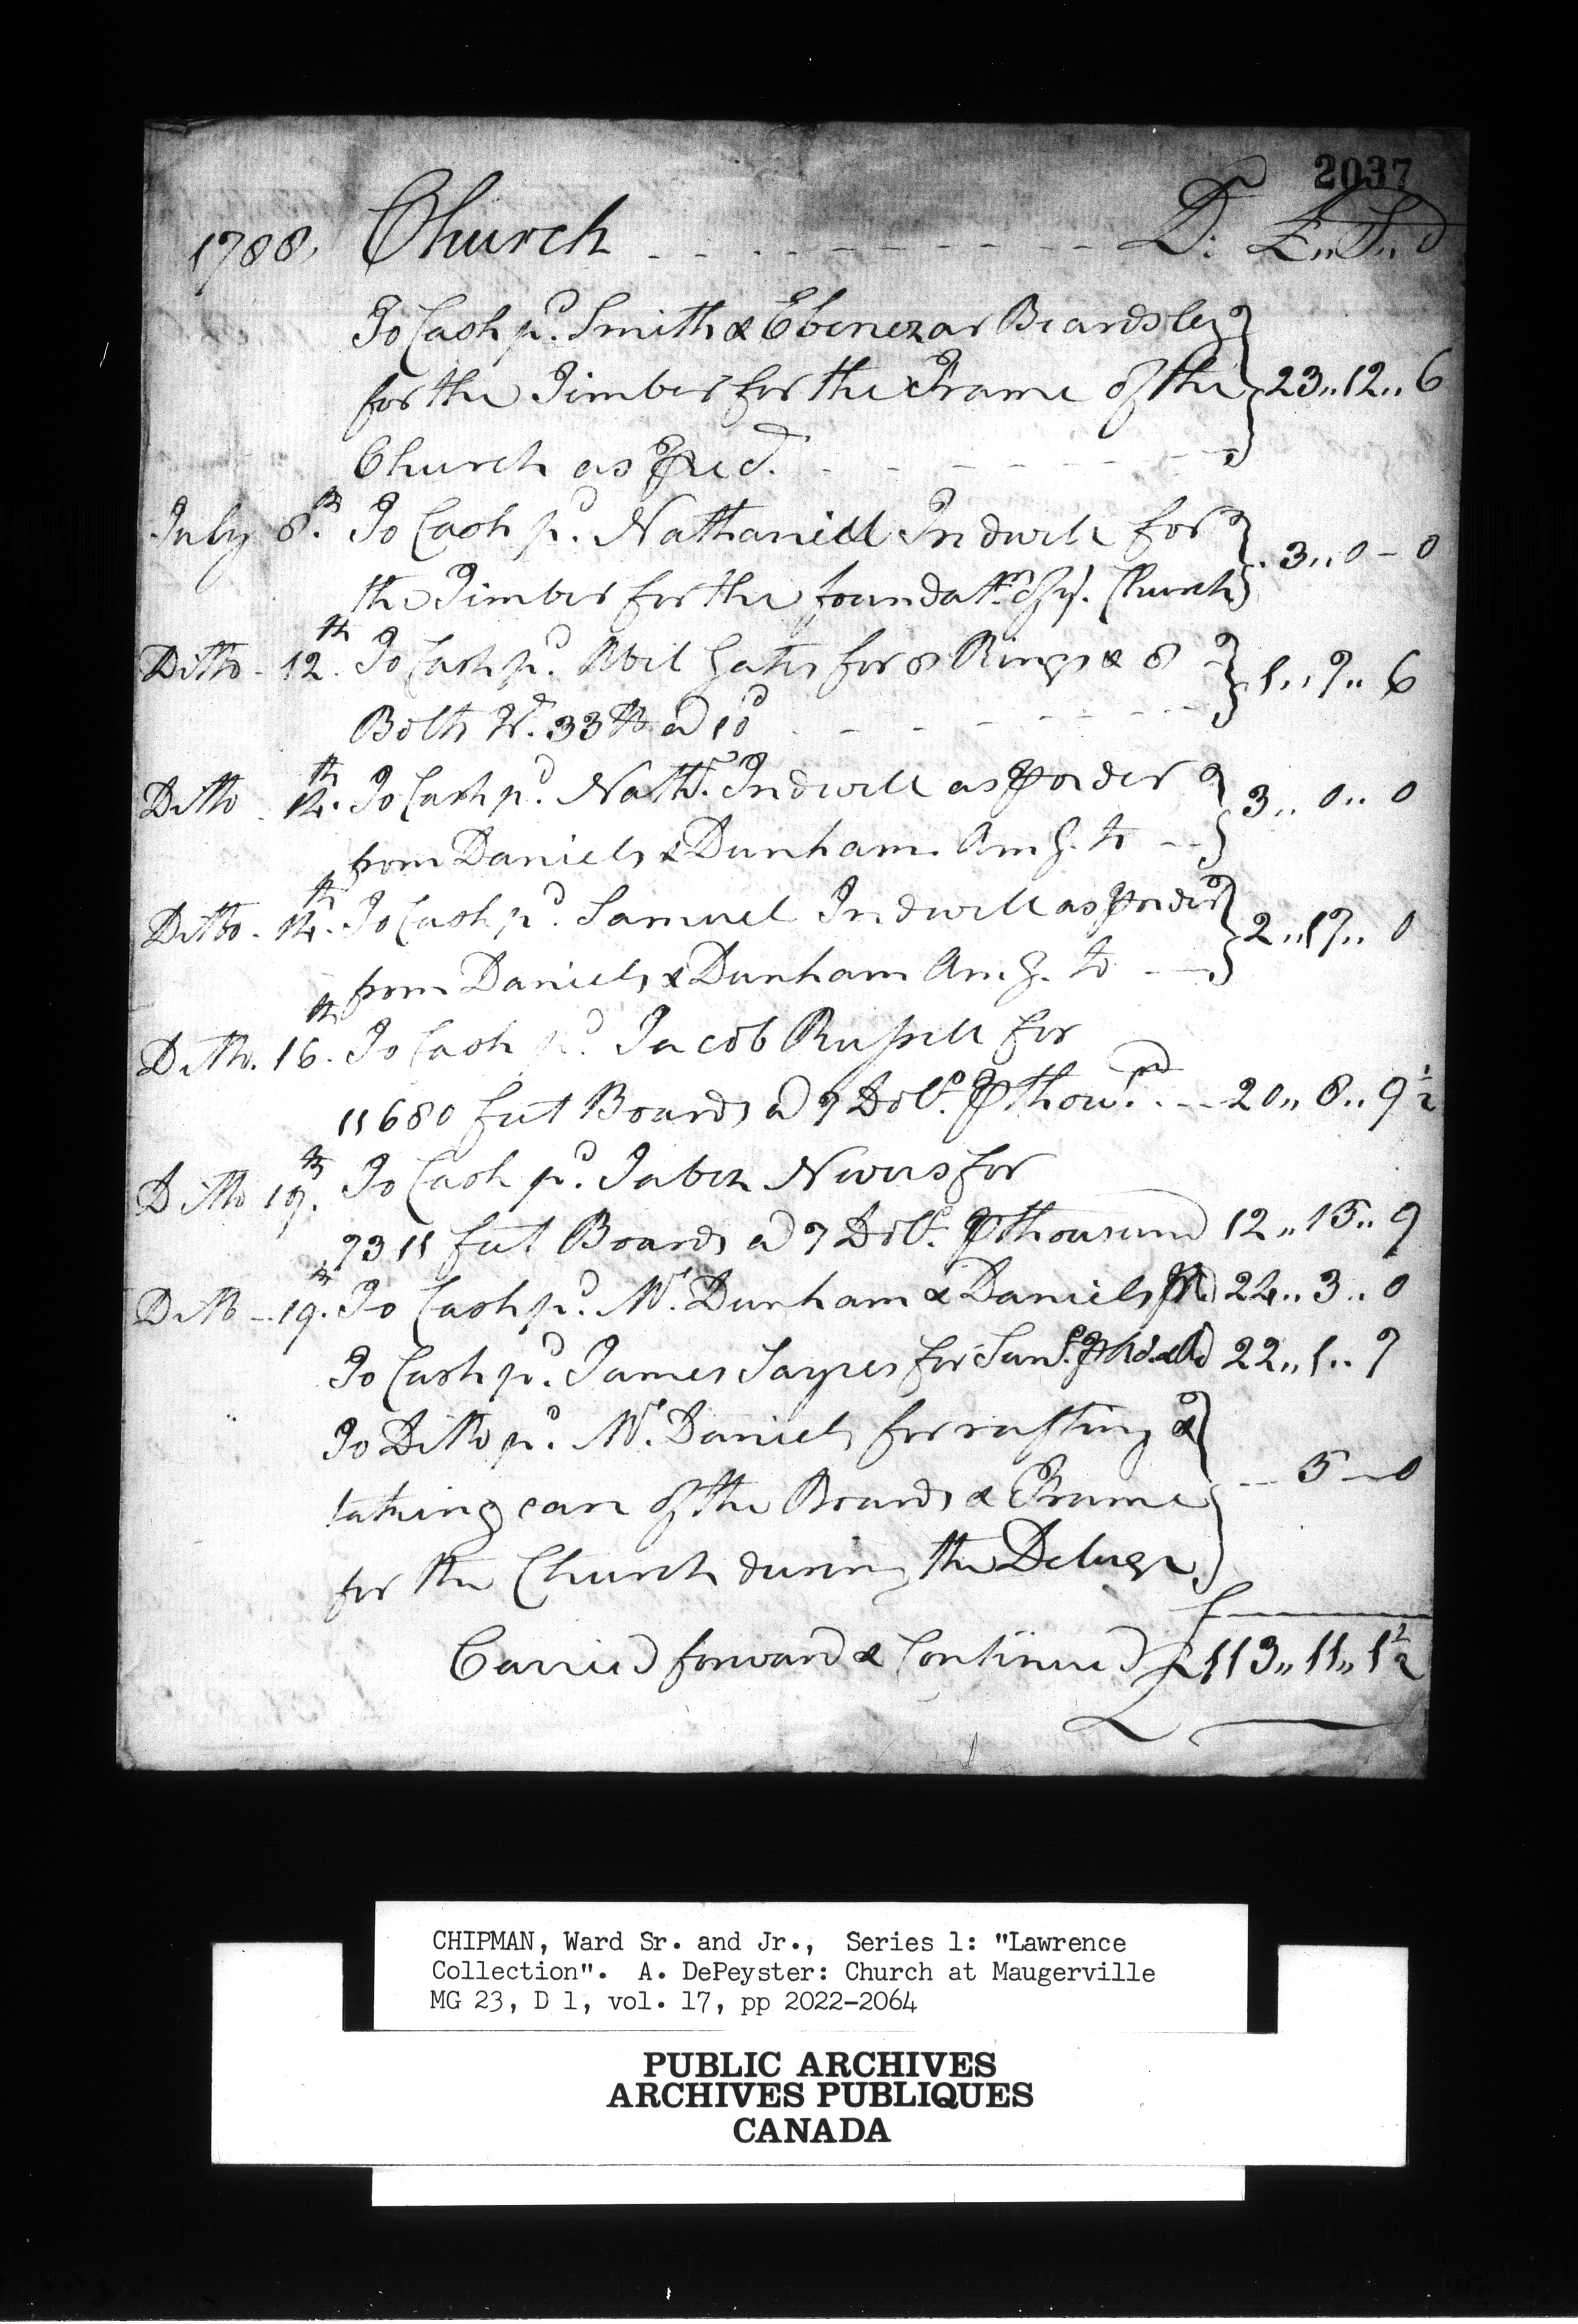 2037
1788, Church - - - - - - - - - - Dr. £,,S,,d
To Cash pd. Smith & Ebenezar Beardsley
for the Timber for the Frame of the 23,,12,,6
Church as ⅌ recd. - - - - - - -
July 8th. To Cash pd. Nathaniell Tredwell for
the Timber for the foundatn. of ye. Church 3,,0-0
Ditto - 12th. To Cash pd. Abil Gates for 8 Rings & 8
Bolts Wt. 33 lb a 10d - - - - - 1,,7,,6
Ditto - 14th. To Cash pd. Nathl. Tredwell as ⅌ order
from Daniels & Dunham Amg. to -- 3,,0,,0
Ditto - 14th. To Cash pd. Samuel Tredwell as ⅌ order
from Daniels & Dunham Amg. to -- 2,,17,,0
Ditto. 16th. To Cash pd. Jacob Russell for
11680 feet Boards a 7 Dolls. ⅌ thousd. -- 20,,8,,9½
Ditto 19th. To Cash pd. Jabez Nevers for
7311 feet Boards a 7 Dolls. ⅌ thousand 12,,15,,9
Ditto - 19th. To Cash pd. Mr. Dunham & Daniels 24,,3,,0
To Cash pd. James Sayres for 22,,1,,7
To Ditto pd. Mr. Daniels for rafting &
taking care of the Boards & Frame -- 5-0
for the Church during the Deluge.
Carried forward & Continued £113,,11,,1½
CHIPMAN, Ward Sr. and Jr., Series 1: "Lawrence
Collection". A. DePeyster: Church at Maugerville
MG 23, D 1, vol. 17, pp 2022-2064
PUBLIC ARCHIVES
ARCHIVES PUBLIQUES
CANADA